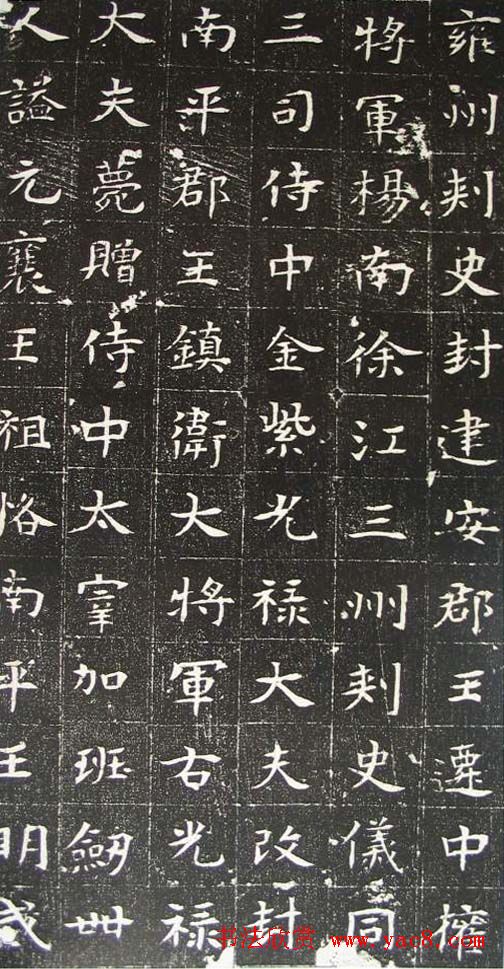 雍州刾史封建安郡王遷中權
將軍楊南徐江三州刾史儀同
三司侍中金紫光禄大夫改封
南平郡王鎮衛大將軍右光禄
大夫薨贈侍中太宰加班劒卌
人謚元襄王祖恪南平王明威
书法欣赏 www.yac8.com